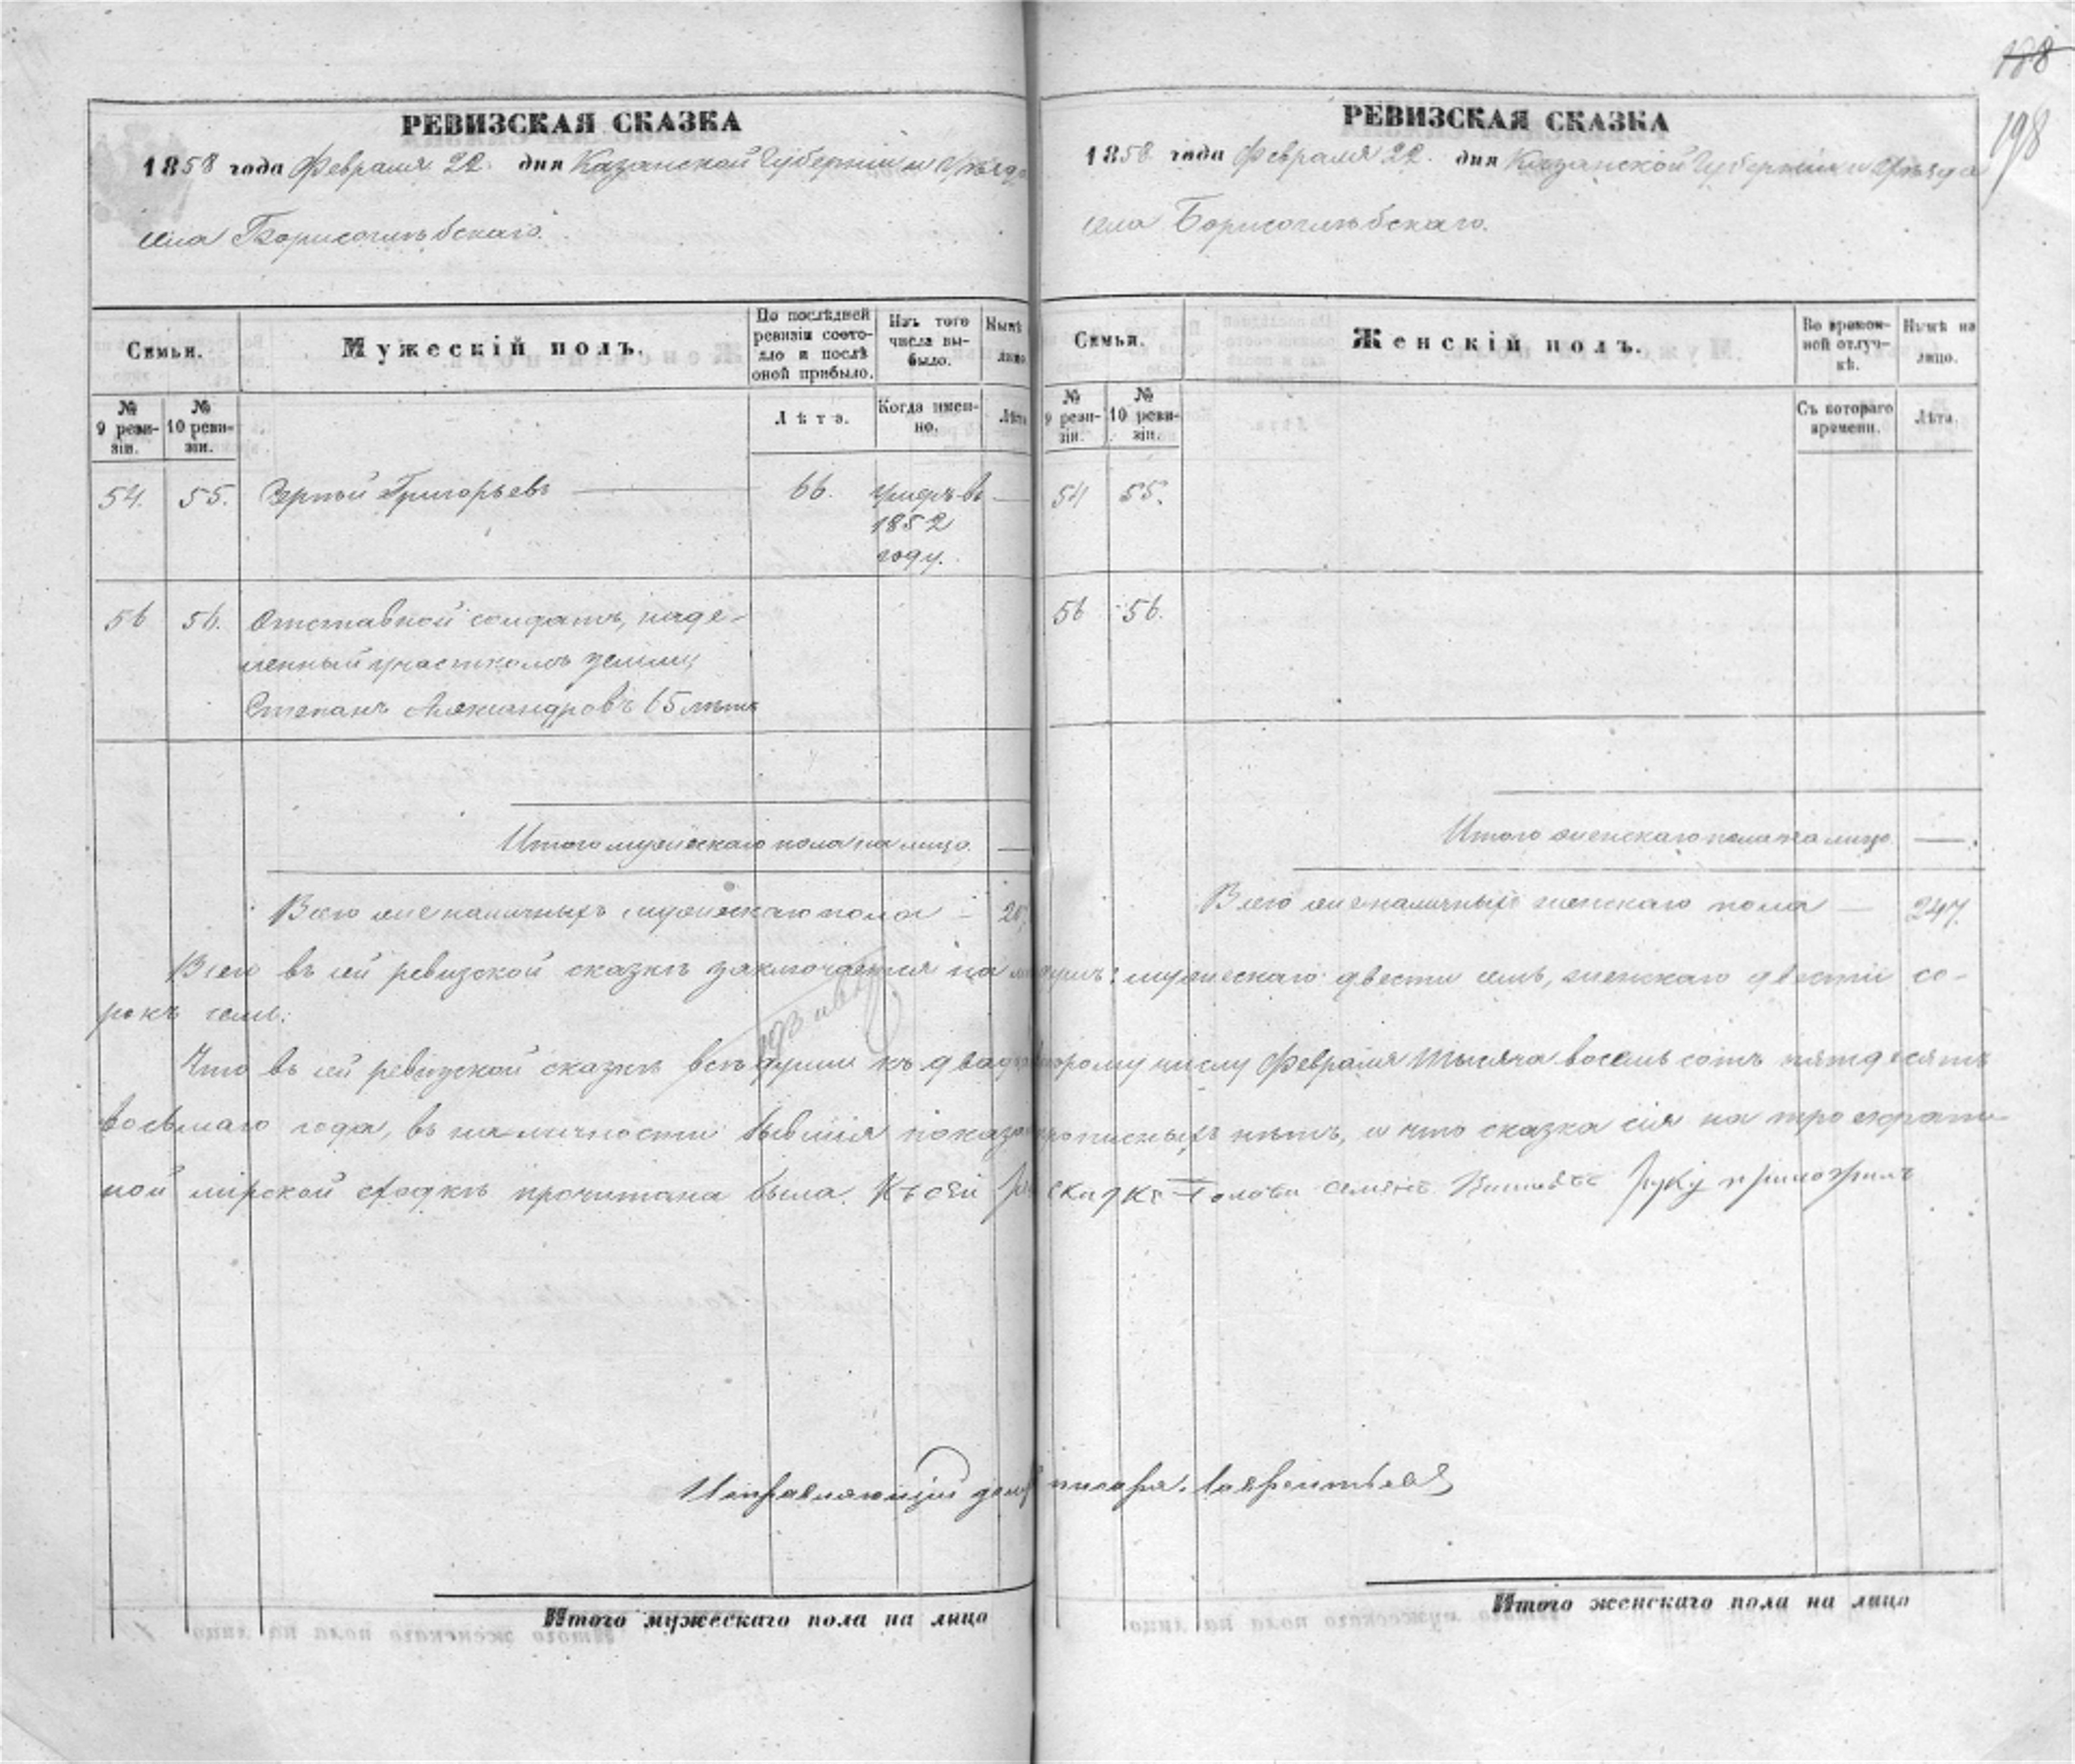 188
198
РЕВИЗСКАЯ СКАЗКА
1858 года Февраля 22 дня Казанской Губерніи и Уѣзда
села Борисоглѣбскаго.
Семьи.
Мужескій полъ.
По послѣдней ревизіи состояло и послѣ оной прибыло.
Изъ того числа выбыло.
Нынѣ
лицо.
№ 9 ревизіи.
№ 10 ревизіи.
Лѣта.
Когда именно.
Лѣта
54. 55. Григорьевъ 66. умеръ въ —
1852
году.
56 56. Отставной солдатъ, наде-
ленный участкомъ земли,
Степанъ Александровъ 65 лѣтъ
Итого мужескаго пола на лицо —
Всего мужескаго пола — 20
РЕВИЗСКАЯ СКАЗКА
1858 года Февраля 22. дня Казанской Губерніи и Уѣзда
села Борисоглѣбскаго.
Семьи.
Женскій полъ.
Во временной отлучкѣ.
Нынѣ на лицо.
№ 9 ревизіи.
№ 10 ревизіи.
Съ котораго времени.
Лѣта.
54 55.
56 56.
Итого женскаго пола на лицо —
Всего женскаго пола — 247.
Всего въ сей ревизской сказкѣ заключается на мужескаго двести семь, женскаго двести со-
рокъ семь.
Что въ сей ревизской сказкѣ всѣ души къ двад второму числу Февраля тысяча восемь сотъ пятдесятъ
восьмаго года, въ наличности бывшія показа прописныхъ нѣтъ, и что сказка сія на троекрат-
ной мірской сходкѣ прочитана была. Къ сей сказке Голова Семенъ руку приложилъ
Исправляющій долж писаря Лаврентьевъ
Итого мужескаго пола на лицо
Итого женскаго пола на лицо